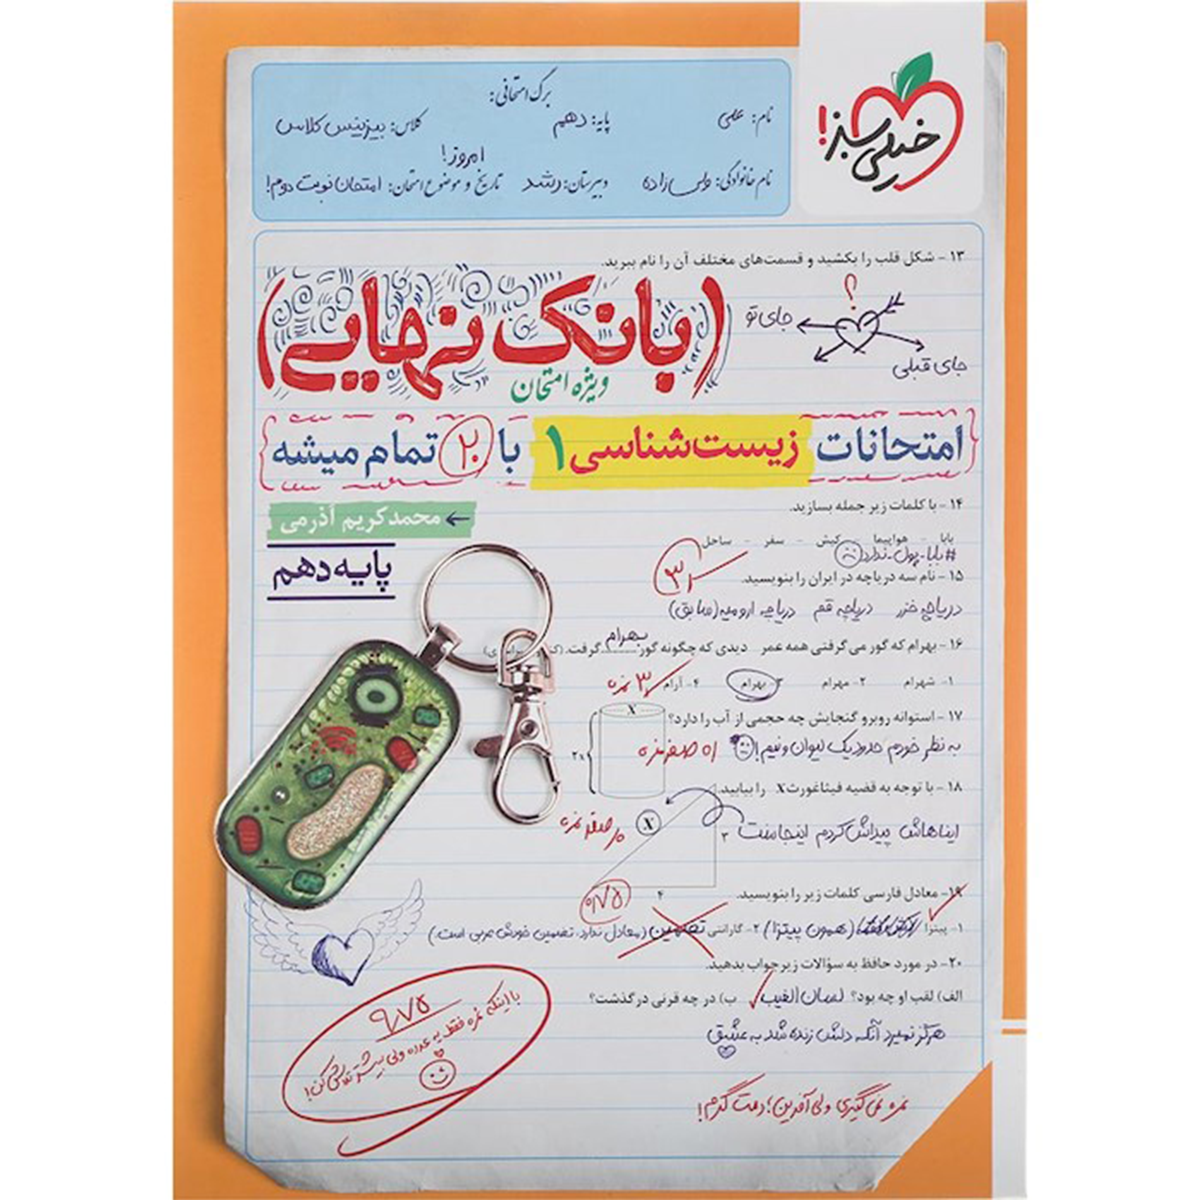 خیلی سبز!
برگ امتحانی:
نام: علی
پایه: دهم
کلاس: بیزینس کلاس
نام خانوادگی: ولی زاده
دبیرستان: رشد
امروز!
تاریخ و موضوع امتحان: امتحان نوبت دوم!
۱۳ - شکل قلب را بکشید و قسمت‌های مختلف آن را نام ببرید.
؟
جای تو
جای قبلی
(بانک نهایی)
ویژه امتحان
امتحانات زیست‌شناسی ۱ با ۲۰ تمام میشه
محمدکریم آذرمی
پایه دهم
۱۴ - با کلمات زیر جمله بسازید.
بابا - هواپیما - کیش - سفر - ساحل
#بابا-پول-ندارد
۳
۱۵ - نام سه دریاچه در ایران را بنویسید.
دریاچه خزر دریاچه قم دریاچه ارومیه (سابق)
۱۶ - بهرام که گور می گرفتی همه عمر دیدی که چگونه گور بهرام گرفت.
۱- شهرام ۲- مهرام ۳- بهرام ۴- آرام
۳ نمره
۱۷ - استوانه روبرو گنجایش چه حجمی از آب را دارد؟
X
2x
به نظر خودم حدود یک لیوان و نیم!
صفر نمره
۱۸ - با توجه به قضیه فیثاغورث X را بیابید.
ایناهاش پیداش کردم اینجاست
X
۳
۴
صفر نمره
۰/۷۵
۱۹ - معادل فارسی کلمات زیر را بنویسید.
۱- پیتزا (همون پیتزا) ۲- گارانتی تضمین (معادل ندارد، تضمین خودش عربی است.)
۲۰ - در مورد حافظ به سؤالات زیر جواب بدهید.
الف) لقب او چه بود؟ لسان الغیب ب) در چه قرنی درگذشت؟
هرگز نمیرد آنکه دلش زنده شد به عشق
۹/۷۵
با اینکه نمره فقط یه عدده ولی بیشتر تلاش کن!
نمره نمی گیری ولی آفرین؛ دمت گرم!